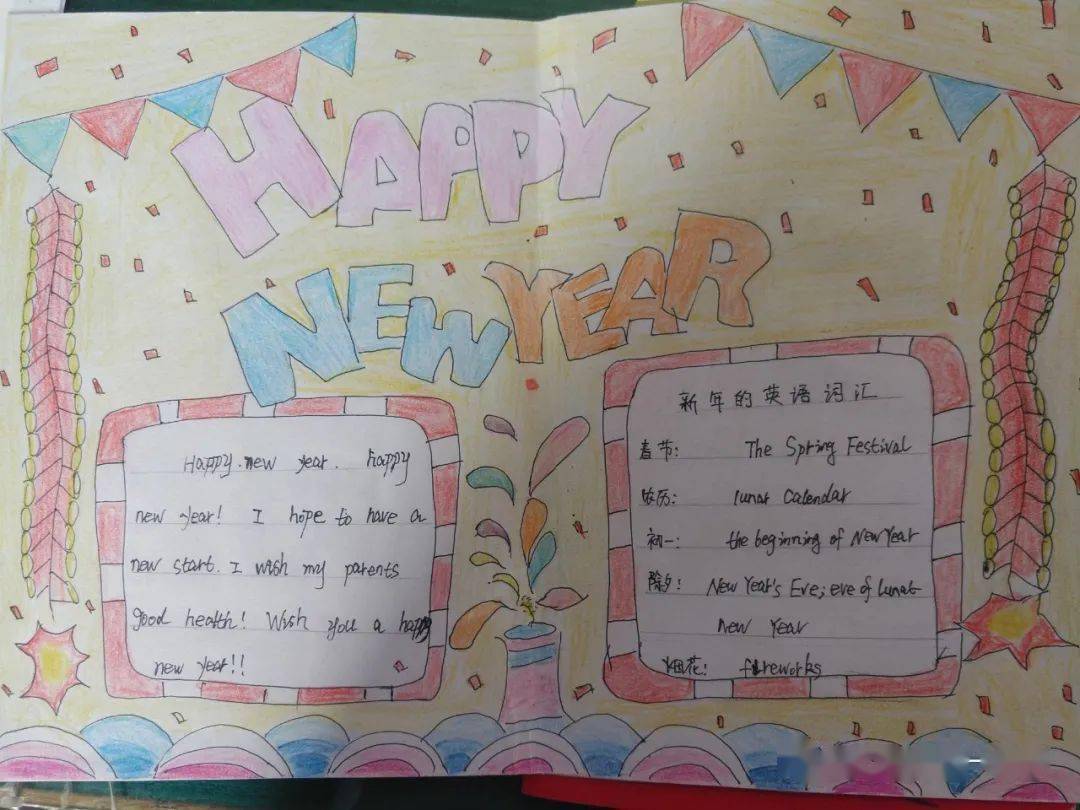 HAPPY
NEW YEAR
Happy. new year. happy
new year! I hope to have a
new start. I wish my parents
good health! Wish you a happy
new year!!
新年的英语词汇
春节: The Spring Festival
农历: lunar Calendar
初一: the beginning of New Year
除夕: New Year's Eve; eve of lunar
New Year
烟花: fireworks